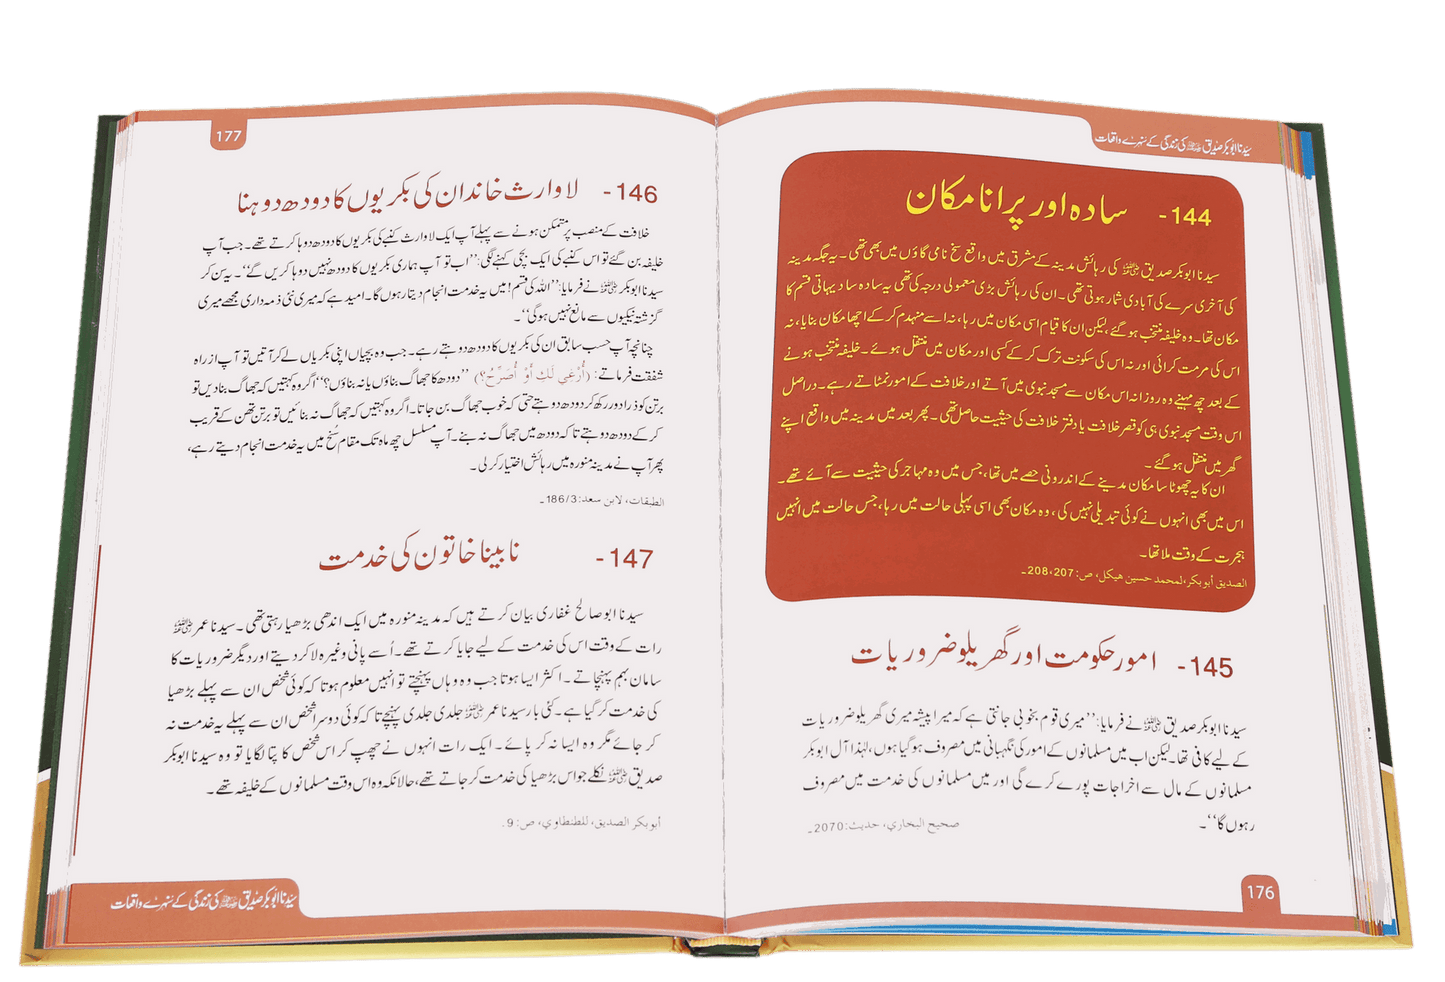 سیدنا ابوبکر صدیق ؓ کی زندگی کے سنہرے واقعات
144- سادہ اور پرانا مکان
سیدنا ابوبکر صدیق ؓ کی رہائش مدینہ کے مشرق میں واقع سخ نامی گاؤں میں بھی تھی۔ یہ جگہ مدینہ
کی آخری سرے کی آبادی شمار ہوتی تھی۔ ان کی رہائش بڑی معمولی درجہ کی تھی یہ سادہ سا دیہاتی قسم کا
مکان تھا۔ وہ خلیفہ منتخب ہو گئے، لیکن ان کا قیام اسی مکان میں رہا، نہ اسے منہدم کر کے اچھا مکان بنایا، نہ
اس کی مرمت کرائی اور نہ اس کی سکونت ترک کر کے کسی اور مکان میں منتقل ہوئے۔ خلیفہ منتخب ہونے
کے بعد چھ مہینے وہ روزانہ اس مکان سے مسجد نبوی میں آتے اور خلافت کے امور نمٹاتے رہے۔ دراصل
اس وقت مسجد نبوی ہی کو قصر خلافت یا دفتر خلافت کی حیثیت حاصل تھی۔ پھر بعد میں مدینہ میں واقع اپنے
گھر میں منتقل ہو گئے۔
ان کا یہ چھوٹا سا مکان مدینے کے اندرونی حصے میں تھا، جس میں وہ مہاجر کی حیثیت سے آئے تھے۔
اس میں بھی انہوں نے کوئی تبدیلی نہیں کی، وہ مکان بھی اسی پہلی حالت میں رہا، جس حالت میں انہیں
ہجرت کے وقت ملا تھا۔
الصديق أبوبكر، لمحمد حسين هيكل، ص: 207، 208۔
145- امور حکومت اور گھریلو ضروریات
سیدنا ابوبکر صدیق ؓ نے فرمایا: ’’میری قوم بخوبی جانتی ہے کہ میرا پیشہ میری گھریلو ضروریات
کے لیے کافی تھا۔ لیکن اب میں مسلمانوں کے امور کی نگہبانی میں مصروف ہو گیا ہوں، لہٰذا آل ابوبکر
مسلمانوں کے مال سے اخراجات پورے کرے گی اور میں مسلمانوں کی خدمت میں مصروف
رہوں گا‘‘۔
صحيح البخاري، حديث: 2070۔
176
177
146- لاوارث خاندان کی بکریوں کا دودھ دوہنا
خلافت کے منصب پر متمکن ہونے سے پہلے آپ ایک لاوارث کنبے کی بکریوں کا دودھ دوہا کرتے تھے۔ جب آپ
خلیفہ بن گئے تو اس کنبے کی ایک بچی کہنے لگی: ’’اب تو آپ ہماری بکریوں کا دودھ نہیں دوہا کریں گے‘‘۔ یہ سن کر
سیدنا ابوبکر ؓ نے فرمایا: ’’اللہ کی قسم! میں یہ خدمت انجام دیتا رہوں گا۔ امید ہے کہ میری نئی ذمہ داری مجھے میری
گزشتہ نیکیوں سے مانع نہیں ہو گی‘‘۔
چنانچہ آپ حسب سابق ان کی بکریوں کا دودھ دوہتے رہے۔ جب وہ بچیاں اپنی بکریاں لے کر آتیں تو آپ از راہ
شفقت فرماتے: (أُرْغِي لَكِ أَوْ أُصَرِّحُ؟) ’’دودھ کا جھاگ بناؤں یا نہ بناؤں؟‘‘ اگر وہ کہتیں کہ جھاگ بنا دیں تو
برتن کو ذرا دور رکھ کر دودھ دوہتے حتی کہ خوب جھاگ بن جاتا۔ اگر وہ کہتیں کہ جھاگ نہ بنائیں تو برتن تھن کے قریب
کر کے دودھ دوہتے تاکہ دودھ میں جھاگ نہ بنے۔ آپ مسلسل چھ ماہ تک مقام سُخ میں یہ خدمت انجام دیتے رہے،
پھر آپ نے مدینہ منورہ میں رہائش اختیار کر لی۔
الطبقات، لابن سعد: 186/3۔
147- نابینا خاتون کی خدمت
سیدنا ابو صالح غفاری بیان کرتے ہیں کہ مدینہ منورہ میں ایک اندھی بڑھیا رہتی تھی۔ سیدنا عمر ؓ
رات کے وقت اس کی خدمت کے لیے جایا کرتے تھے۔ اُسے پانی وغیرہ لا کر دیتے اور دیگر ضروریات کا
سامان بہم پہنچاتے۔ اکثر ایسا ہوتا جب وہ وہاں پہنچتے تو انہیں معلوم ہوتا کہ کوئی شخص ان سے پہلے بڑھیا
کی خدمت کر گیا ہے۔ کئی بار سیدنا عمر ؓ جلدی جلدی پہنچے تاکہ کوئی دوسرا شخص ان سے پہلے یہ خدمت نہ
کر جائے مگر وہ ایسا نہ کر پائے۔ ایک رات انہوں نے چھپ کر اس شخص کا پتا لگایا تو وہ سیدنا ابوبکر
صدیق ؓ نکلے جو اس بڑھیا کی خدمت کر جاتے تھے، حالانکہ وہ اس وقت مسلمانوں کے خلیفہ تھے۔
أبوبكر الصديق، للطنطاوي، ص: 9۔
سیدنا ابوبکر صدیق ؓ کی زندگی کے سنہرے واقعات